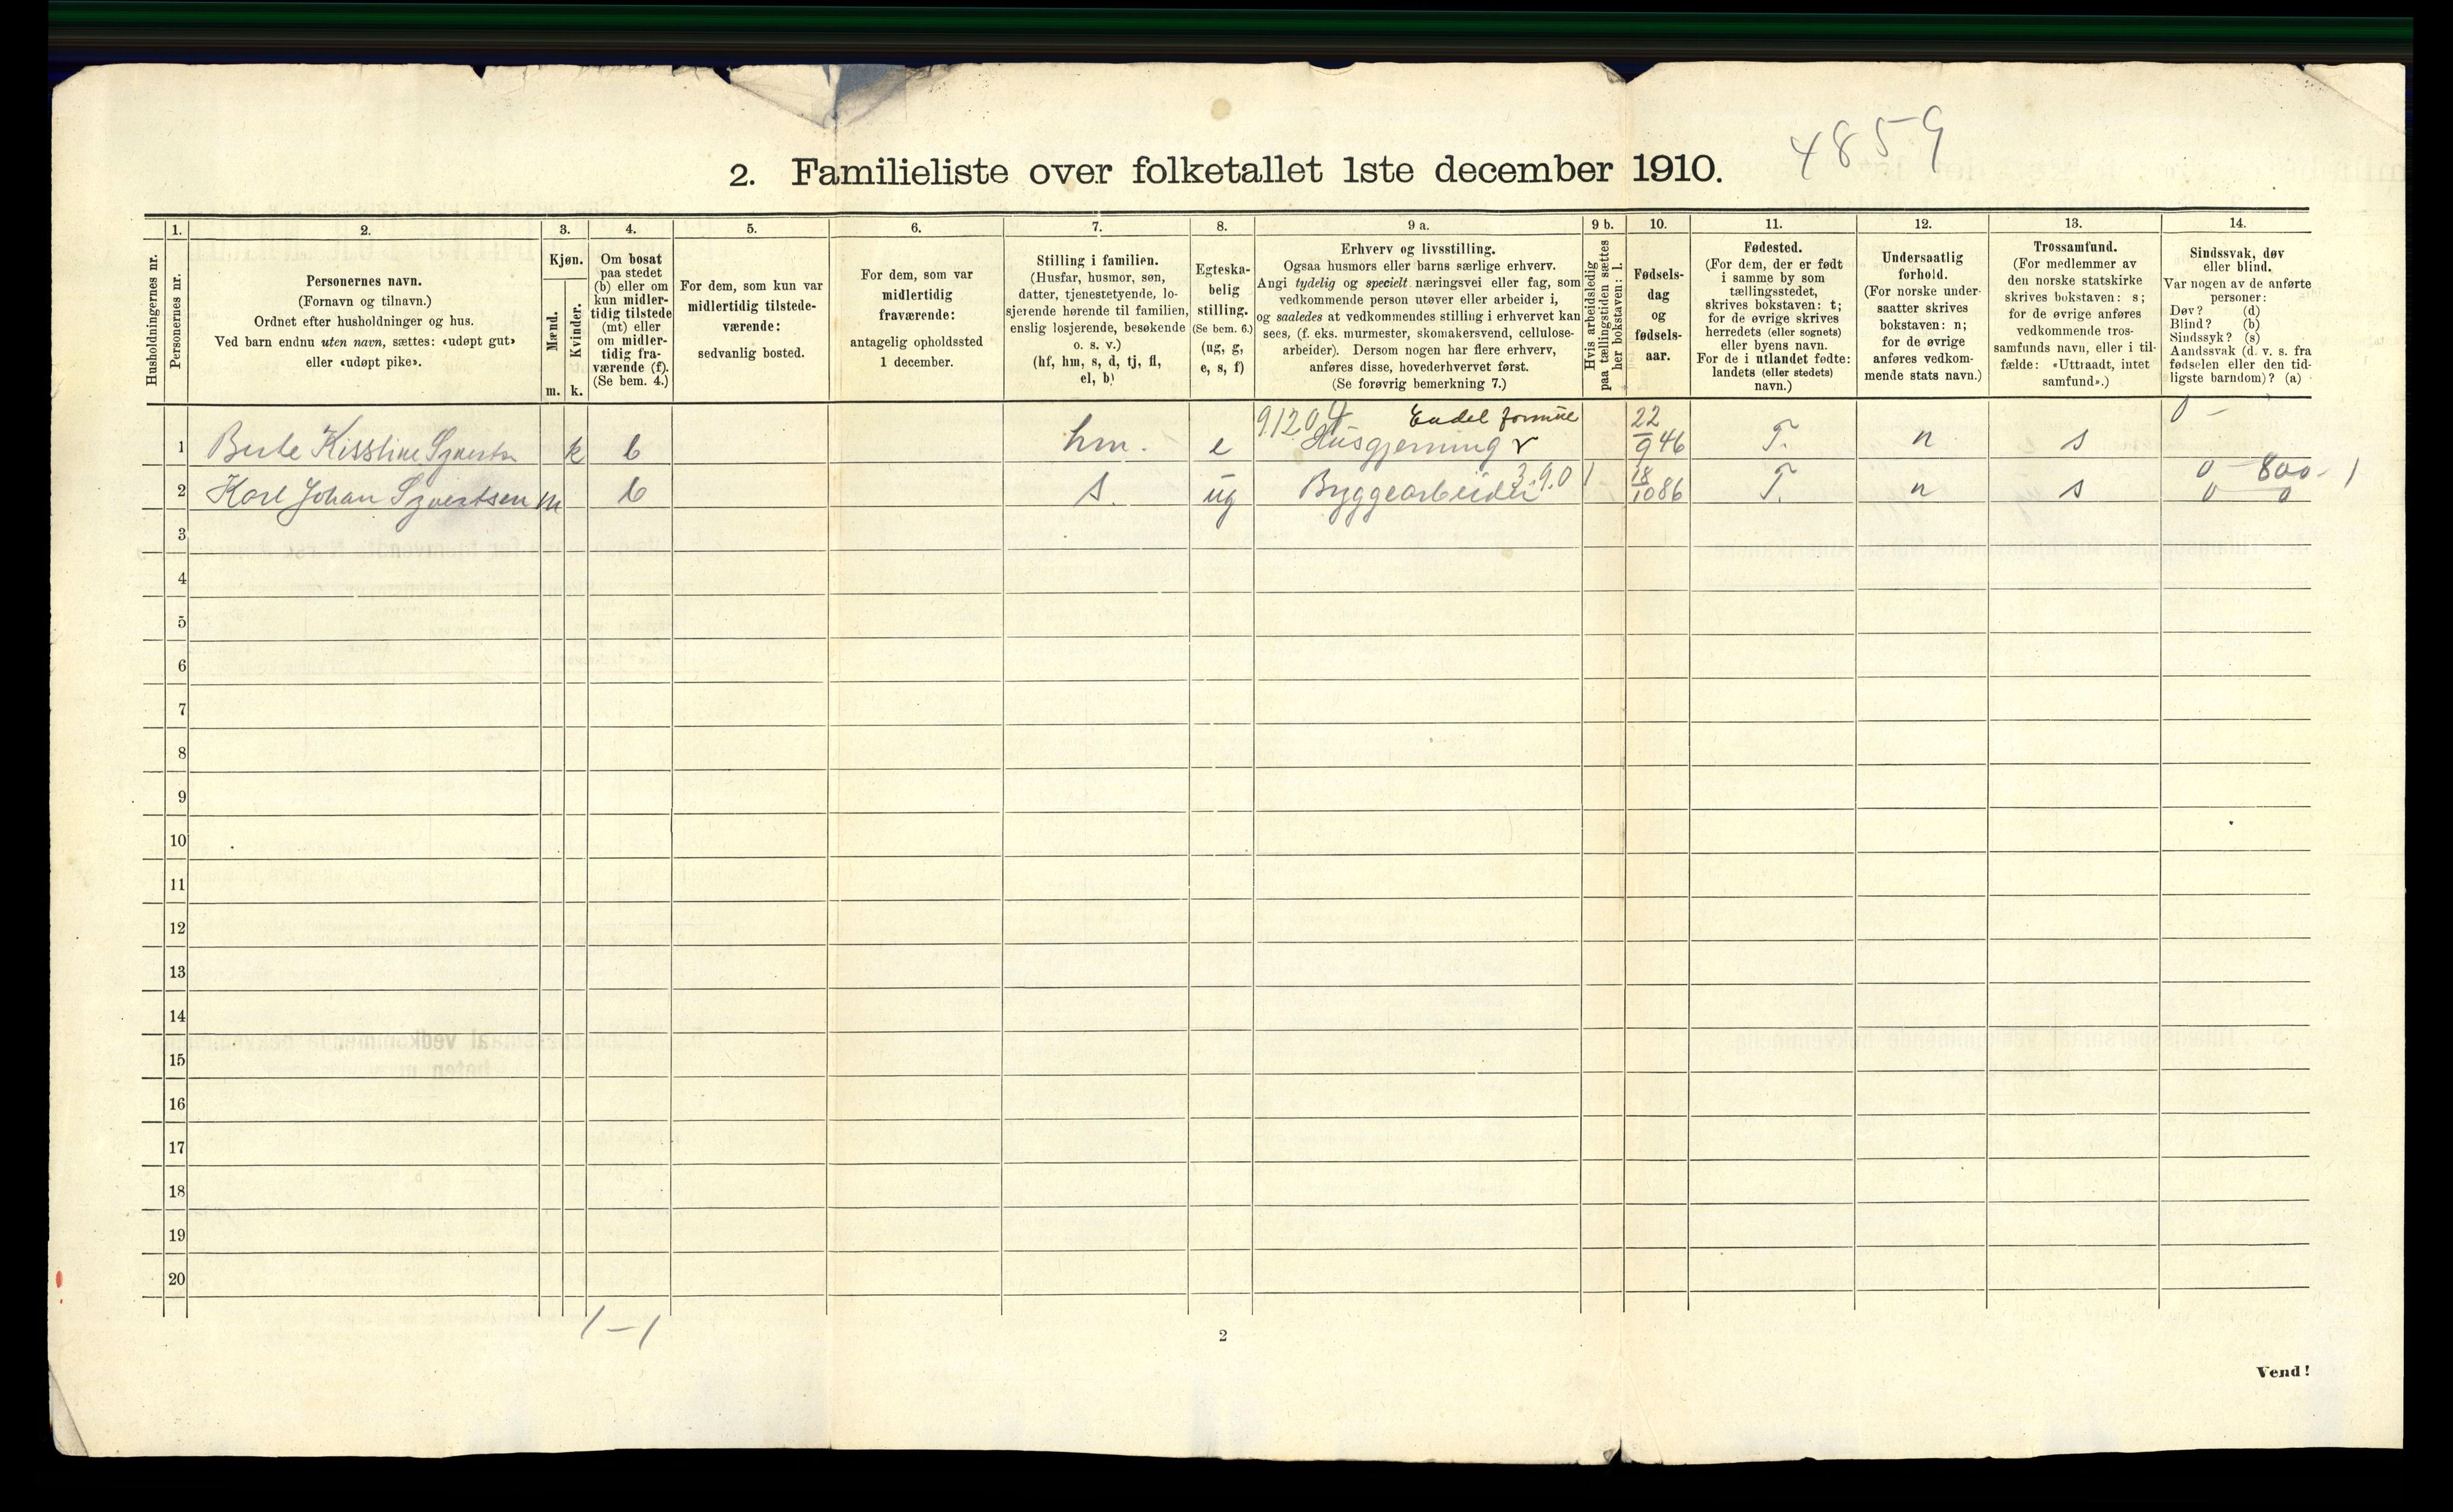 4859
2. Familieliste over folketallet 1ste december 1910.
1. 2. 3. 4. 5. 6. 7. 8. 9 a. 9 b. 10. 11. 12. 13. 14.
Husholdningernes nr.
Personernes nr.
Personernes navn.
(Fornavn og tilnavn.)
Ordnet efter husholdninger og hus.
Ved barn endnu uten navn, sættes: «udøpt gut»
eller «udøpt pike».
Kjøn.
Mænd.
Kvinder.
m. k.
Om bosat
paa stedet
(b) eller om
kun midler-
tidig tilstede
(mt) eller
om midler-
tidig fra-
værende (f).
(Se bem. 4.)
For dem, som kun var
midlertidig tilstede-
værende:
sedvanlig bosted.
For dem, som var
midlertidig
fraværende:
antagelig opholdssted
1 december.
Stilling i familien.
(Husfar, husmor, søn,
datter, tjenestetyende, lo-
sjerende hørende til familien,
enslig losjerende, besøkende
o. s. v.)
(hf, hm, s, d, tj, fl,
el, b)
Egteska-
belig
stilling.
(Se bem. 6.)
(ug, g,
e, s, f)
Erhverv og livsstilling.
Ogsaa husmors eller barns særlige erhverv.
Angi tydelig og specielt næringsvei eller fag, som
vedkommende person utøver eller arbeider i,
og saaledes at vedkommendes stilling i erhvervet kan
sees, (f. eks. murmester, skomakersvend, cellulose-
arbeider). Dersom nogen har flere erhverv,
anføres disse, hovederhvervet først.
(Se forøvrig bemerkning 7.)
Hvis arbeidsledig
paa tællingstiden sættes
her bokstaven: l.
Fødsels-
dag
og
fødsels-
aar.
Fødested.
(For dem, der er født
i samme by som
tællingsstedet,
skrives bokstaven: t;
for de øvrige skrives
herredets (eller sognets)
eller byens navn.
For de i utlandet fødte:
landets (eller stedets)
navn.)
Undersaatlig
forhold.
(For norske under-
saatter skrives
bokstaven: n;
for de øvrige
anføres vedkom-
mende stats navn.)
Trossamfund.
(For medlemmer av
den norske statskirke
skrives bokstaven: s;
for de øvrige anføres
vedkommende tros-
samfunds navn, eller i til-
fælde: «Uttraadt, intet
samfund».)
Sindssvak, døv
eller blind.
Var nogen av de anførte
personer:
Døv? (d)
Blind? (b)
Sindssyk? (s)
Aandssvak (d. v. s. fra
fødselen eller den tid-
ligste barndom)? (a)
9.120 4 Endel formue 22 0 -
1 k b hm. e Husgjerning v 9 46 T. n s
3.90 1 18 0 - 800 - 1
2 Karl Johan Syvertsen m b s. ug Byggearbeider 10 86 T. n s 0 0
3
4
5
6
7
8
9
10
11
12
13
14
15
16
17
18
19
20
1 - 1
2
Vend!